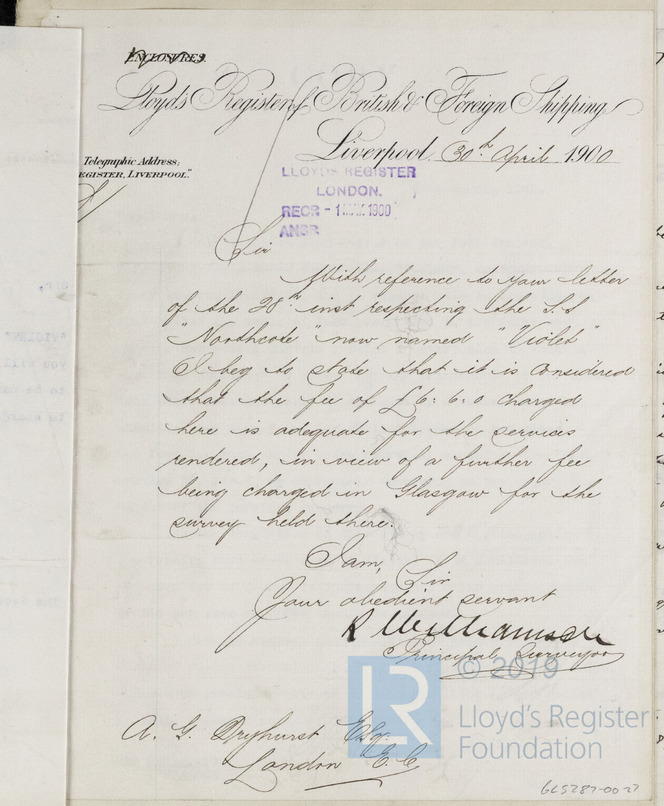 ENCLOSURES.
Lloyd's Register of British & Foreign Shipping,
Liverpool, 30th April 1900
Telegraphic Address;
EGISTER, LIVERPOOL."
LLOYD'S REGISTER
LONDON.
RECR - 1 MAY 1900
ANSR
Sir
With reference to your letter
of the 28th inst respecting the S.S
"Northcote" now named "Violet"
I beg to state that it is considered
that the fee of £6:6:0 charged
here is adequate for the services
rendered, in view of a further fee
being charged in Glasgow for the
survey held there.
I am, Sir
Your obedient servant
Principal Surveyor
© 2019
LR
Lloyd's Register
Foundation
A. G. Dryhurst Esq.
London E.C